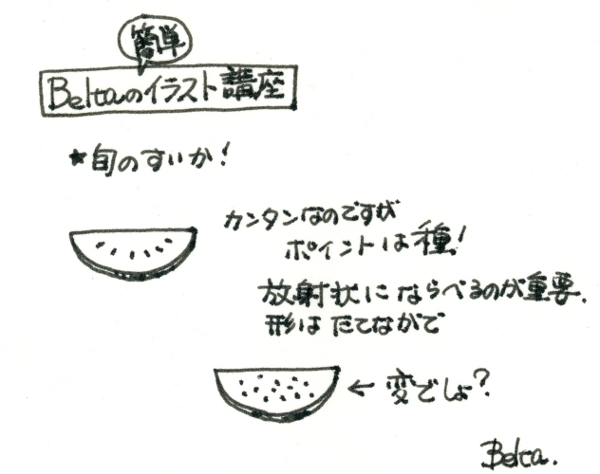 簡単
Beltaのイラスト講座
★旬のすいか!
カンタンなのですが
ポイントは種!
放射状にならべるのが重要.
形はたてながで
← 変でしょ?
Belta.